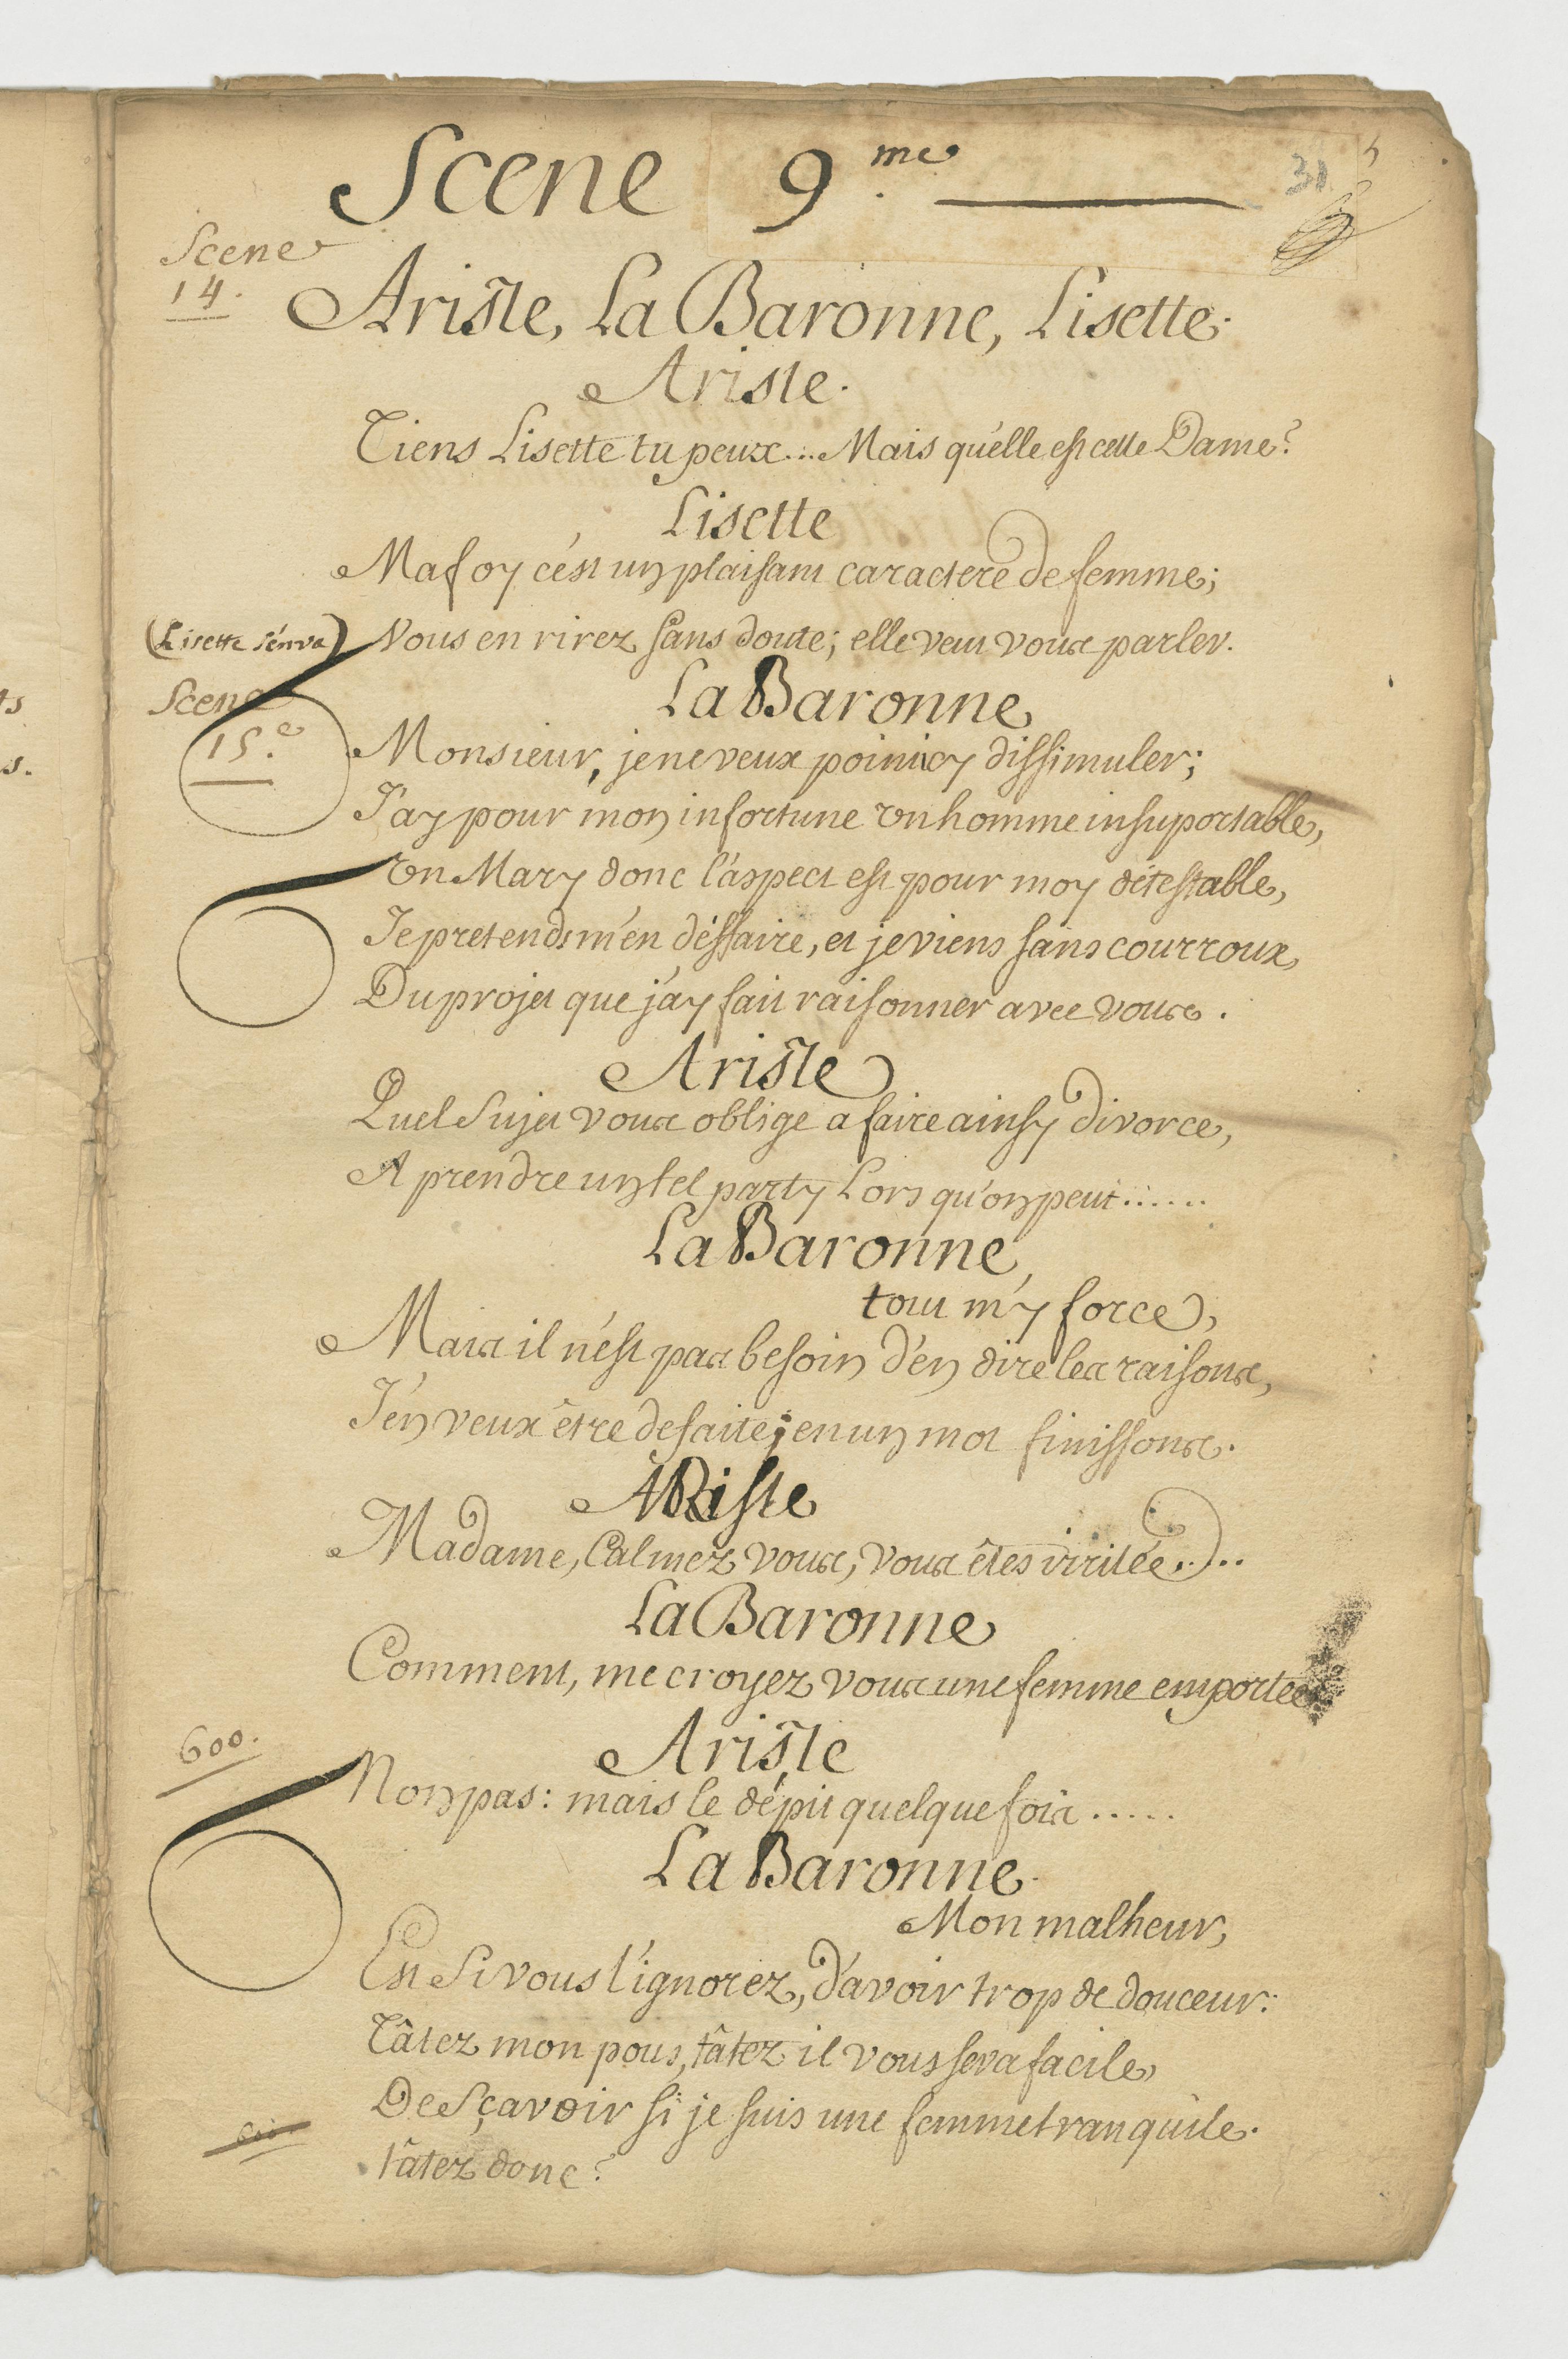 Scene 9.me
31
Scene
14.
Ariste, La Baronne, Lisette.
Ariste.
Tiens Lisette tu peux... Mais qu'elle est cette Dame?
Lisette
Ma foy c'ést un plaisant caractere de femme;
(Lisette s'én va)
Vous en rirez sans doute; elle veut vous parler.
La Baronne
Scene
15.e
Monsieur, je ne veux point icy dissimuler;
J'ay pour mon infortune un homme insuportable,
Un Mary donc l'aspect est pour moy détestable,
Je pretends m'en déffaire, et je viens sans courroux,
Du projet que j'ay fait raisonner avec vous.
Ariste
Quel Sujet vous oblige a faire ainsy divorce,
A prendre un tel party Lors qu'on peut......
La Baronne
tout m'y force,
Mais il n'est pas besoin d'en dire les raisons,
J'én veux être defaite; en un mot finissons.
ARiste
Madame, Calmez vous, vous êtes irritée.....
La Baronne
Comment, me croyez vous une femme emportée
Ariste
600.
Non pas: mais le dépit quelque fois.....
La Baronne.
Mon malheur,
Est Si vous l'ignorez, d'avoir trop de douceur:
Tâtez mon pous, tâtez il vous sera facile
De Sçavoir si je suis une femme tranquile.
600.
tâtez donc?